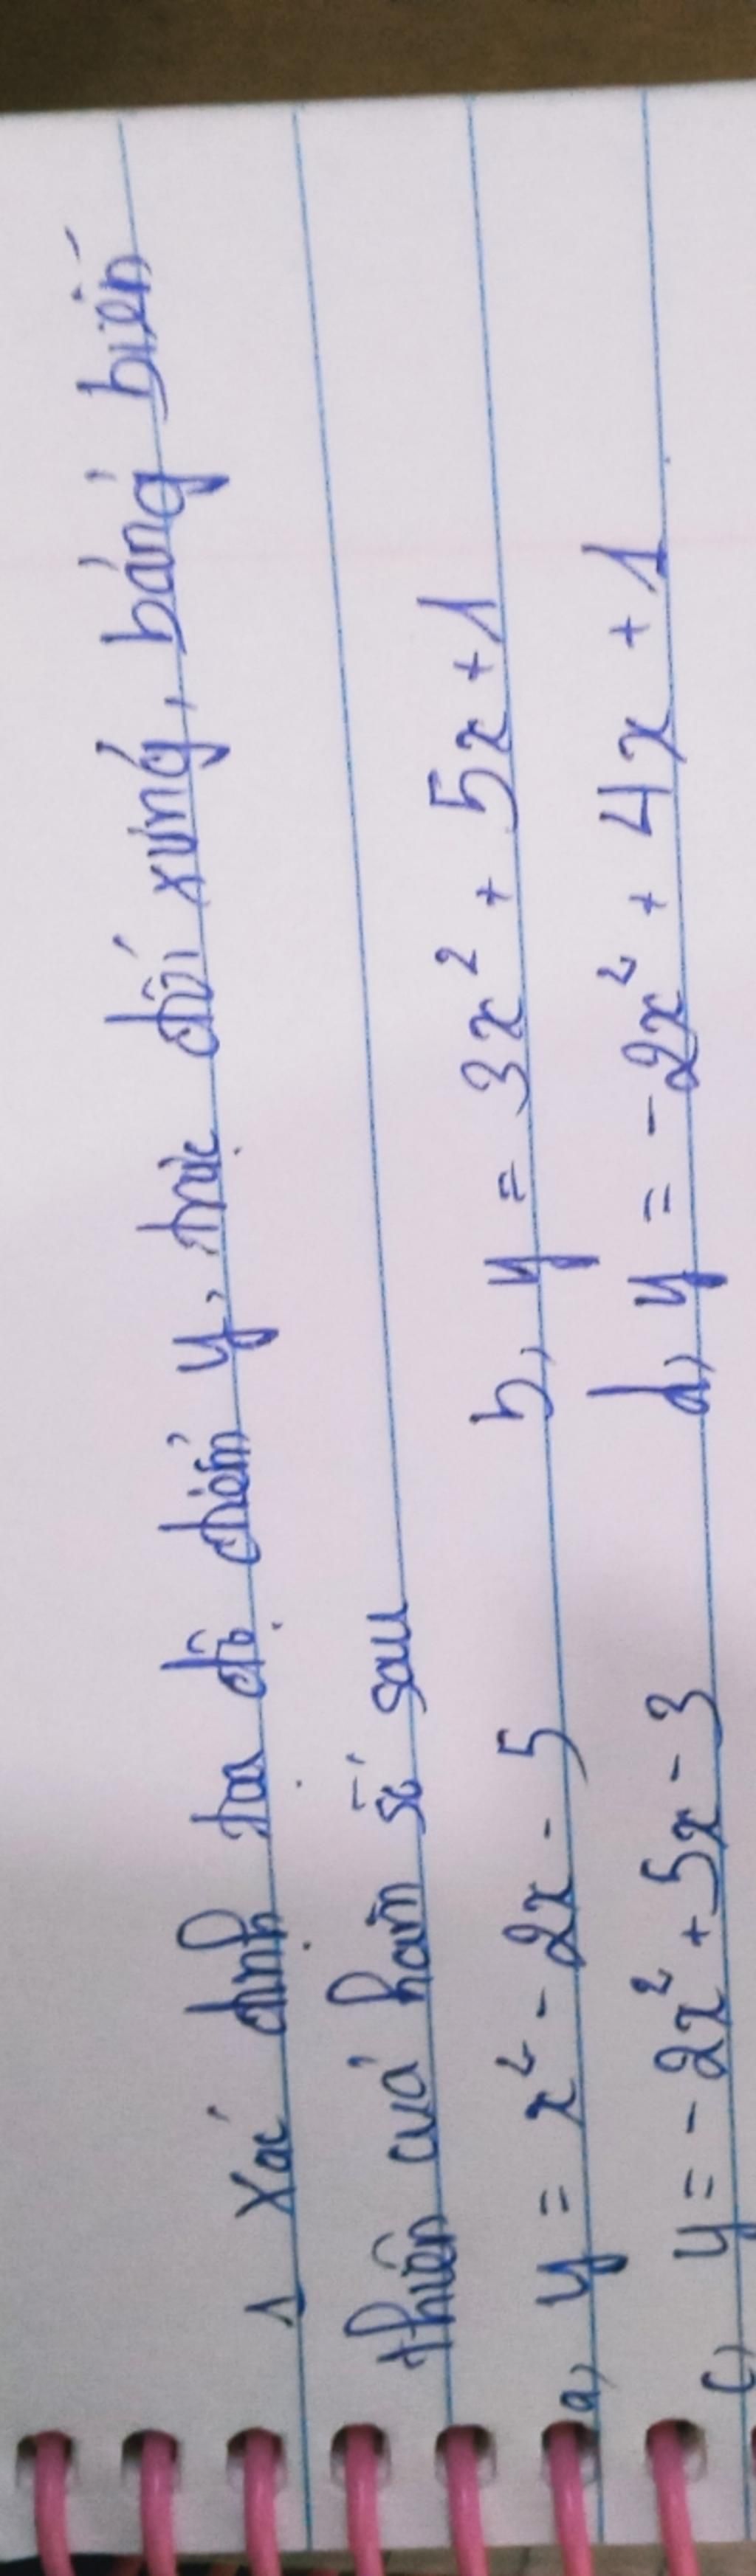 1 Xác định toạ độ điểm y, trục đối xứng, bảng biến
thiên của hàm số sau
a, y = x² - 2x - 5 b, y = 3x² + 5x + 1
c, y = - 2x² + 5x - 3 d, y = - 2x² + 4x + 1